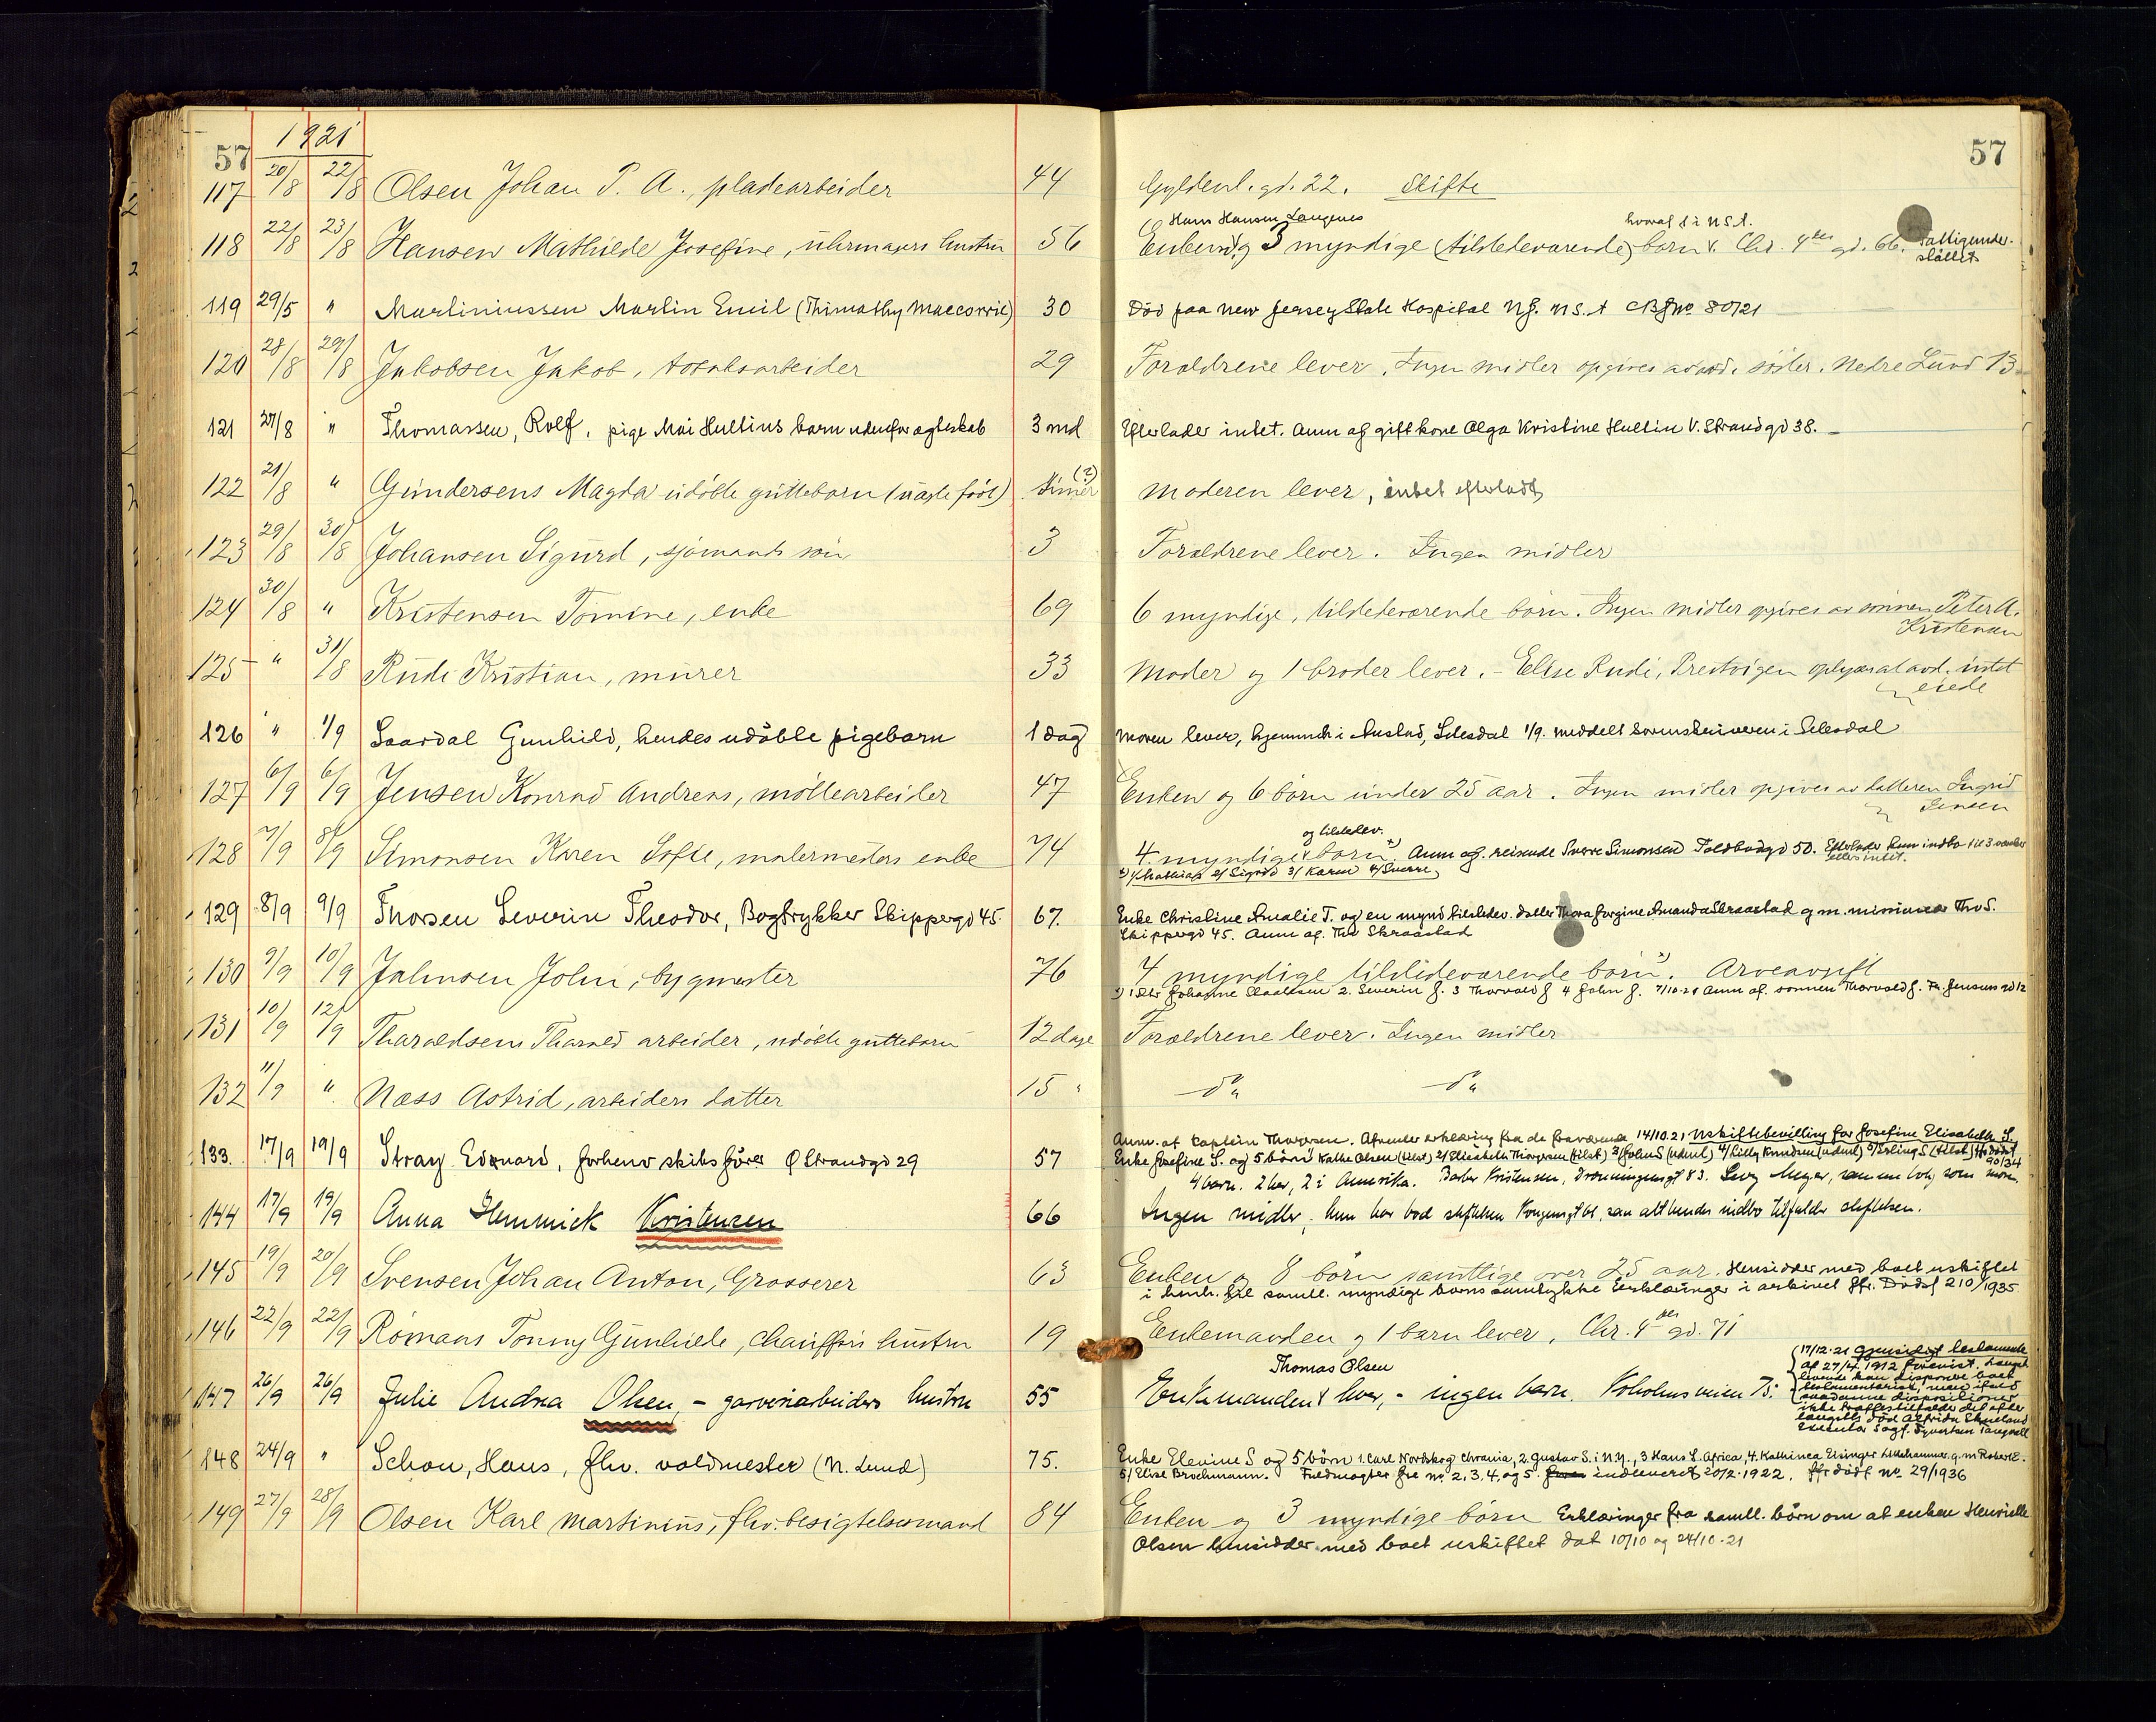 57 1921 57
117 20/8 22/8 Olsen Johan P. A., pladearbeider 44 Gyldenl. gd. 22. Skifte
Hans Hansen Langenes hvoraf 1 i U.S.A.
118 22/8 23/8 Hansen Mathilde Josefine, uhrmagers hustru 56 Enkem. og 3 myndige (tilstedeværende) børn v. Chr. 4des gd. 66. Fattigunder-
støttet
119 29/5 " Martiniussen Martin Emil (Thimothy Maccorric) 30 Död paa New Jersey State Hospital N.J. U.S.A 80/21
120 28/8 29/8 Jakobsen Jakob, tobaksarbeider 29 Forældrene lever. Ingen midler opgives av avd. söster. Nedre Lund 13
121 27/8 " Thomassen, Rolf, pige Mai Hultins barn udenfor ægteskab 3 md Efterlader intet. Anm af gift kone Olga Kristine Hultin V. Strandgd 38.
122 21/8 " Gundersens Magda udöbte guttebarn (uægte født) timer (2) Moderen lever, intet efterladt
123 29/8 30/8 Johansen Sigurd, sjømands søn 3 Forældrene lever. Ingen midler
124 30/8 " Kristensen Tomine, enke 69 6 myndige, tilstedeværende børn. Ingen midler opgives av sønnen Peter A.
Kristensen
125 " 31/8 Rudi Kristian, murer 33 Moder og 1 broder lever. - Elise Rudi, Prestvigen oplyser at avd. intet
eiede
126 " 1/9 Saardal Gunhild, hendes udöbte pigebarn 1 dag Moren lever, hjemmeh i Austad, Setesdal 1/9. meddelt sorenskriveren i Setesdal
127 6/9 6/9 Jensen Konrad Andreas, möllearbeider 47 Enken og 6 børn under 25 aar. Ingen midler opgives av datteren Ingrid
Jensen
og tilstedev.
128 7/9 8/9 Simonsen Karen Sofie, malermesters enke 74 4 myndige børn. Anm af. reisende Sverre Simonsen Toldbodgd 50. Efterlader kun indbo til 3 værelser
ellers intet.
1/ Mathias 2/ Sigrid 3/ Karen 4/ Sverre
129 8/9 9/9 Thorsen Severin Theodor, Bogtrykker Skippergd 45. 67. Enke Christine Amalie T. og en mynd tilstedev. datter Thora Jorgine Amanda Skraastad g m. missionær Th S.
Skippergd 45. Anm af. Th Skraastad
130 9/9 10/9 Jahnsen John, bygmester 76 4 myndige tilstedeværende børn. Arveavgift
1 Johanne 2. Severin J. 3 Thorvald J 4 John J. 7/10-21 Anm af. sønnen Thorvald J.
131 10/9 12/9 Tharaldsens Tharald arbeider, udöbte guttebarn 12 dage Forældrene lever. Ingen midler
132 11/9 " Næss Astrid, arbeiders datter 15 " do do
Anm. at kaptein Thorgersen. Afventer erklæring fra de fraværende 14/10.21 Uskiftebevilling for Josefine Elisabeth S.
133. 17/9 19/9 Stray Edvard, forhenv skibsförer Ø Strandgd 29 57 Enke Josefine S. og 5 børn Kathe Olsen (tilst) 2/ Elisabeth Thorgersen (tilst) 3/ John S (udenl) 4/ Lilly Knudsen (udenl) 5/ Erling S (tilst)
90/34
4 barn. 2 her, 2 i Amerika. Barber Kristensen, Dronningensgt 83.
144 17/9 19/9 Anna Hemmick Kristensen 66 Ingen midler, hun har bod stiftelsen Kongensgt 61, saa alt hendes indbo tilfalder stiftelsen.
145 19/9 20/9 Svensen Johan Anton, Grosserer 63 Enken og 8 børn samtlige over 25 aar. Hensidder med boet uskiftet
i henh. til samtl. myndige børns samtykke Erklæringer i arkivet Jfr. Dødsf 210/1935
146 22/9 22/9 Romans Tonny Gunhilde, Chaufførs hustru 19 Enkemanden og 1 barn lever, Chr. 4des gd. 71
Thomas Olsen
147 26/9 26/9 Julie Andrea Olsen, - garveriarbeiders hustru 55 Enkemanden lever, - ingen barn. Koholmsveien 7:
17/12-21 Gjensidigt testamente
af 27/4. 1912 forevist. Længst
levende kan disponere boet
testamentarisk, men ifald
saadanne dispositioner
ikke træffes tilfalder det efter
længstl. død Alfrida Skueland
148 24/9 " Schou, Hans, fhv. voldmester (N. Lund) 75. Enke Elevine S og 5 børn 1. Carl Nordskog Chrania, 2. Gustav S. i N.Y., 3 Hans S. Africa, 4. Kathinca Eisinger Lillehammer g. m Robert E.
5/ Elise Brochmann. Fuldmagter fra no. 2, 3, 4, og 5 indleveret 20/2-1922. Jfr dödsf no 29/1936
149 27/9 28/9 Olsen Karl Martinius, fhv. besigtelsesmand 84 Enken og 3 myndige børn Erklæringer fra samtl. børn om at enken Henriette
Olsen hensidder med boet uskiftet dat 10/10 og 24/10-21